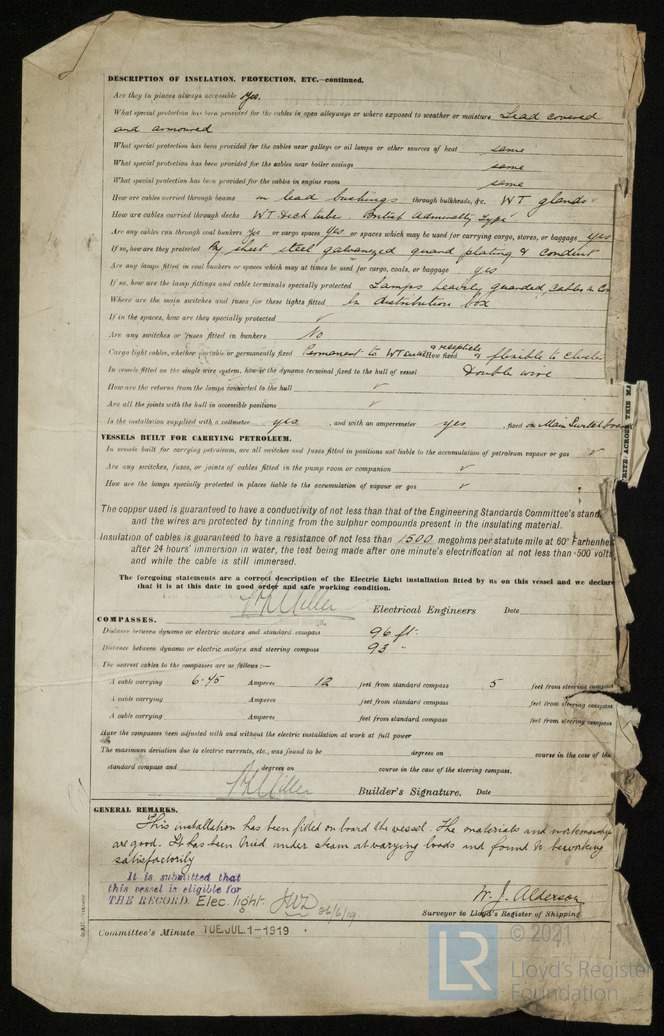 DESCRIPTION OF INSULATION, PROTECTION, ETC.—continued.
Are they in places always accessible Yes.
What special protection has been provided for the cables in open alleyways or where exposed to weather or moisture Lead covered
and armoured
What special protection has been provided for the cables near galleys or oil lamps or other sources of heat same
What special protection has been provided for the cables near boiler casings same
What special protection has been provided for the cables in engine room same
How are cables carried through beams in lead bushings through bulkheads, &c. WT glands
How are cables carried through decks WT Deck tube. British Admiralty Type
Are any cables run through coal bunkers Yes or cargo spaces Yes or spaces which may be used for carrying cargo, stores, or baggage yes
If so, how are they protected By sheet steel galvanized guard plating & conduit
Are any lamps fitted in coal bunkers or spaces which may at times be used for cargo, coals, or baggage yes
If so, how are the lamp fittings and cable terminals specially protected Lamps heavily guarded, cables in
Where are the main switches and fuses for these lights fitted In distribution box
If in the spaces, how are they specially protected ✓
Are any switches or fuses fitted in bunkers No
Cargo light cables, whether portable or permanently fixed Permanent to WT How fixed flexible to cluster
In vessels fitted on the single wire system, how is the dynamo terminal fixed to the hull of vessel Double wire
How are the returns from the lamps connected to the hull ✓
Are all the joints with the hull in accessible positions ✓
Is the installation supplied with a voltmeter yes, and with an amperemeter yes, fixed on Main Switchboard
VESSELS BUILT FOR CARRYING PETROLEUM.
In vessels built for carrying petroleum, are all switches and fuses fitted in positions not liable to the accumulation of petroleum vapour or gas ✓
Are any switches, fuses, or joints of cables fitted in the pump room or companion ✓
How are the lamps specially protected in places liable to the accumulation of vapour or gas ✓
The copper used is guaranteed to have a conductivity of not less than that of the Engineering Standards Committee's stand
and the wires are protected by tinning from the sulphur compounds present in the insulating material.
Insulation of cables is guaranteed to have a resistance of not less than 1500 megohms per statute mile at 60° Farhenhe
after 24 hours' immersion in water, the test being made after one minute's electrification at not less than 500 volts
and while the cable is still immersed.
The foregoing statements are a correct description of the Electric Light installation fitted by us on this vessel and we declare
that it is at this date in good order and safe working condition.
Miller Electrical Engineers Date
COMPASSES.
Distance between dynamo or electric motors and standard compass 96 ft.
Distance between dynamo or electric motors and steering compass 93 "
The nearest cables to the compasses are as follows:—
A cable carrying 6.45 Amperes 12 feet from standard compass 5 feet from steering compass
A cable carrying Amperes feet from standard compass feet from steering compass
A cable carrying Amperes feet from standard compass feet from steering compass
Have the compasses been adjusted with and without the electric installation at work at full power
The maximum deviation due to electric currents, etc., was found to be degrees on course in the case of the
standard compass and degrees on course in the case of the steering compass.
Miller Builder's Signature. Date
GENERAL REMARKS.
This installation has been fitted on board the vessel. The materials and workmanship
are good. It has been tried under steam at varying loads and found to be working
satisfactorily
It is submitted that
this vessel is eligible for
THE RECORD. Elec. light. 26/6/19.
W. J. Alderson
Surveyor to Lloyd's Register of Shipping.
Committee's Minute TUE.JUL.1-1919
LR © 2021
Lloyd's Register
Foundation